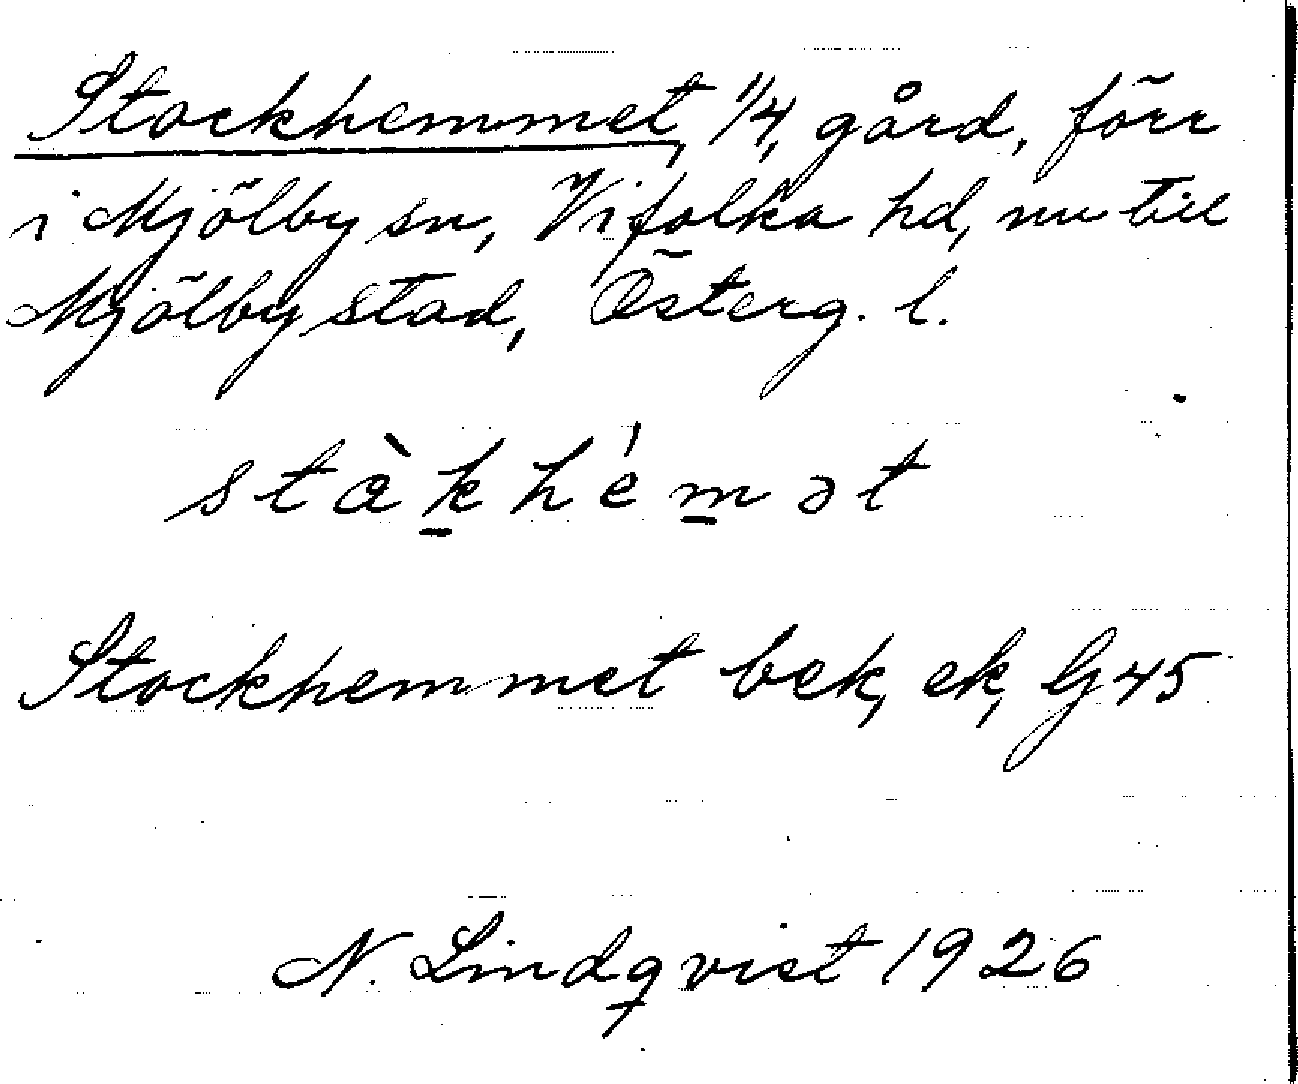 Stockhemmet, 1/4, gård, förr
i Mjölby sn, Vifolka hd, nu till
Mjölby stad, Österg. l.
stàk̲hém̲ət
Stockhemmet bek, ek, G 45
N. Lindqvist 1926